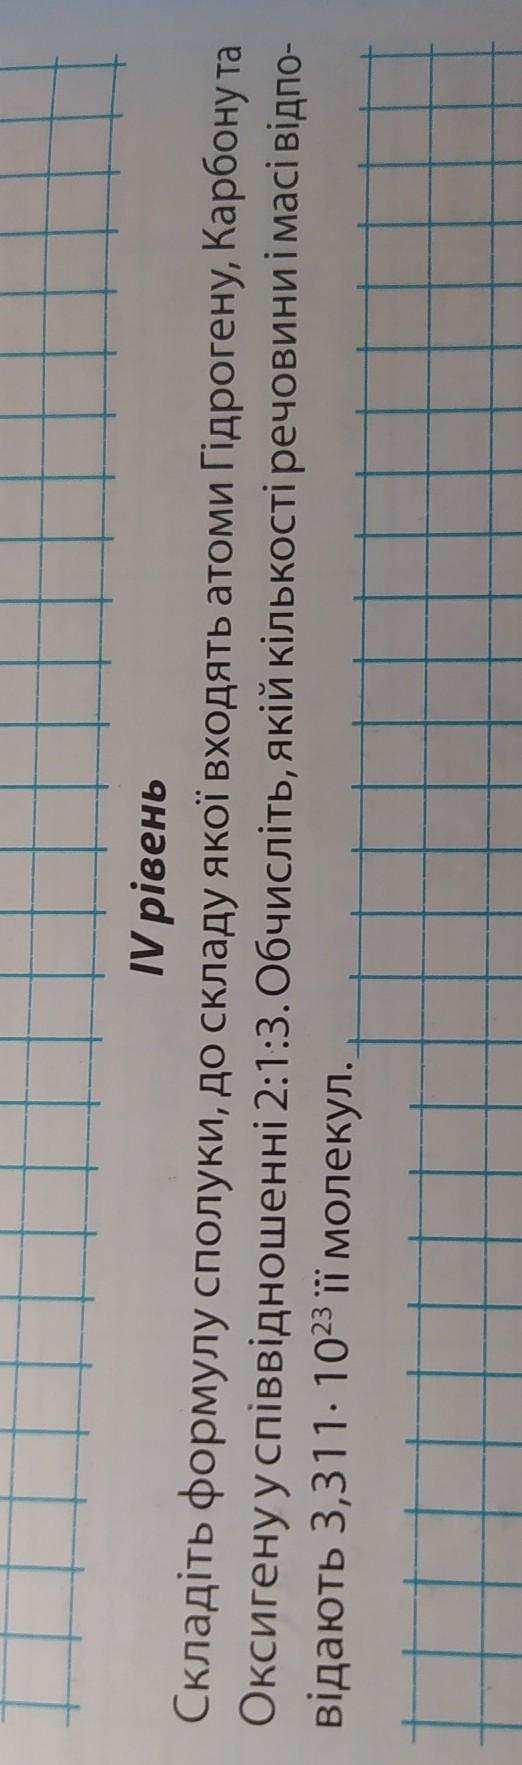 IV рівень
Складіть формулу сполуки, до складу якої входять атоми Гідрогену, Карбону та
Оксигену у співвідношенні 2:1:3. Обчисліть, якій кількості речовини і масі відпо-
відають 3,311· 10²³ її молекул.